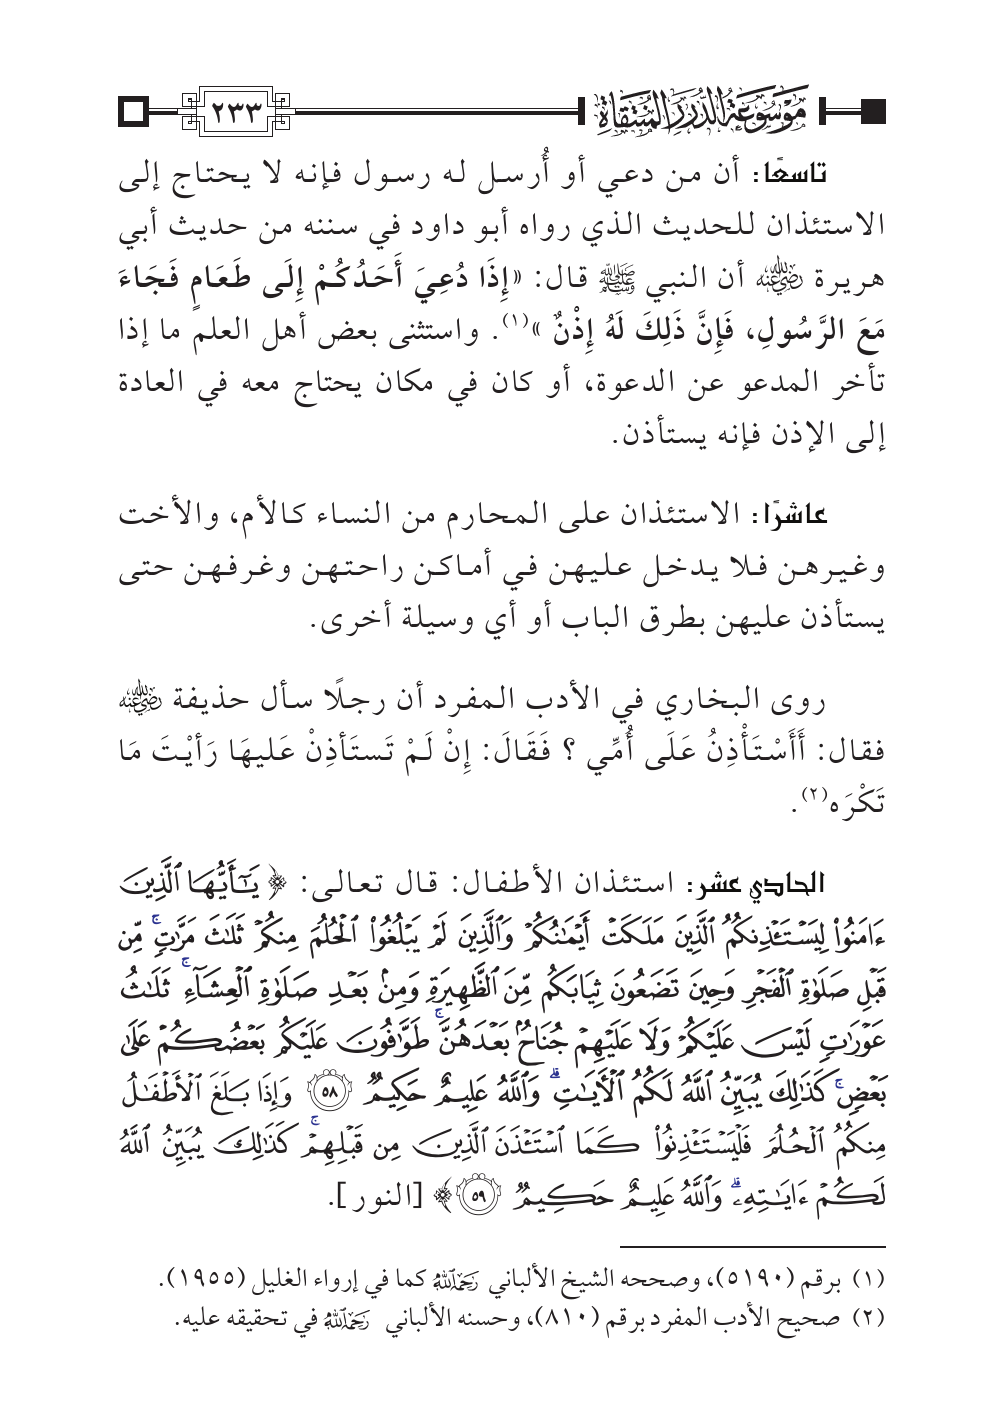 موسوعة الدرر المنتقاة
٢٣٣
تاسعًا: أن من دعي أو أُرسل له رسول فإنه لا يحتاج إلى
الاستئذان للحديث الذي رواه أبو داود في سننه من حديث أبي
هريرة رضي الله عنه أن النبي ﷺ قال: «إِذَا دُعِيَ أَحَدُكُمْ إِلَى طَعَامٍ فَجَاءَ
مَعَ الرَّسُولِ، فَإِنَّ ذَلِكَ لَهُ إِذْنٌ »(١). واستثنى بعض أهل العلم ما إذا
تأخر المدعو عن الدعوة، أو كان في مكان يحتاج معه في العادة
إلى الإذن فإنه يستأذن.
عاشرًا: الاستئذان على المحارم من النساء كالأم، والأخت
وغيرهن فلا يدخل عليهن في أماكن راحتهن وغرفهن حتى
يستأذن عليهن بطرق الباب أو أي وسيلة أخرى.
روى البخاري في الأدب المفرد أن رجلًا سأل حذيفة رضي الله عنه
فقال: أَأَسْتَأْذِنُ عَلَى أُمِّي ؟ فَقَالَ: إِنْ لَمْ تَستَأذِنْ عَليهَا رَأيْتَ مَا
تَكْرَه(٢).
الحادي عشر: استئذان الأطفال: قال تعالى: ﴿ يَٰٓأَيُّهَا ٱلَّذِينَ
ءَامَنُوا۟ لِيَسْتَـْٔذِنكُمُ ٱلَّذِينَ مَلَكَتْ أَيْمَٰنُكُمْ وَٱلَّذِينَ لَمْ يَبْلُغُوا۟ ٱلْحُلُمَ مِنكُمْ ثَلَٰثَ مَرَّٰتٍ ۚ مِّن
قَبْلِ صَلَوٰةِ ٱلْفَجْرِ وَحِينَ تَضَعُونَ ثِيَابَكُم مِّنَ ٱلظَّهِيرَةِ وَمِنۢ بَعْدِ صَلَوٰةِ ٱلْعِشَآءِ ۚ ثَلَٰثُ
عَوْرَٰتٍ لَّكُمْ ۚ لَيْسَ عَلَيْكُمْ وَلَا عَلَيْهِمْ جُنَاحٌۢ بَعْدَهُنَّ ۚ طَوَّٰفُونَ عَلَيْكُم بَعْضُكُمْ عَلَىٰ
بَعْضٍ ۚ كَذَٰلِكَ يُبَيِّنُ ٱللَّهُ لَكُمُ ٱلْءَايَٰتِ ۗ وَٱللَّهُ عَلِيمٌ حَكِيمٌ ۝٥٨ وَإِذَا بَلَغَ ٱلْأَطْفَٰلُ
مِنكُمُ ٱلْحُلُمَ فَلْيَسْتَـْٔذِنُوا۟ كَمَا ٱسْتَـْٔذَنَ ٱلَّذِينَ مِن قَبْلِهِمْ ۚ كَذَٰلِكَ يُبَيِّنُ ٱللَّهُ
لَكُمْ ءَايَٰتِهِۦ ۗ وَٱللَّهُ عَلِيمٌ حَكِيمٌ ۝٥٩ ﴾ [النور].
(١) برقم (٥١٩٠)، وصححه الشيخ الألباني رحمه الله كما في إرواء الغليل (١٩٥٥).
(٢) صحيح الأدب المفرد برقم (٨١٠)، وحسنه الألباني رحمه الله في تحقيقه عليه.